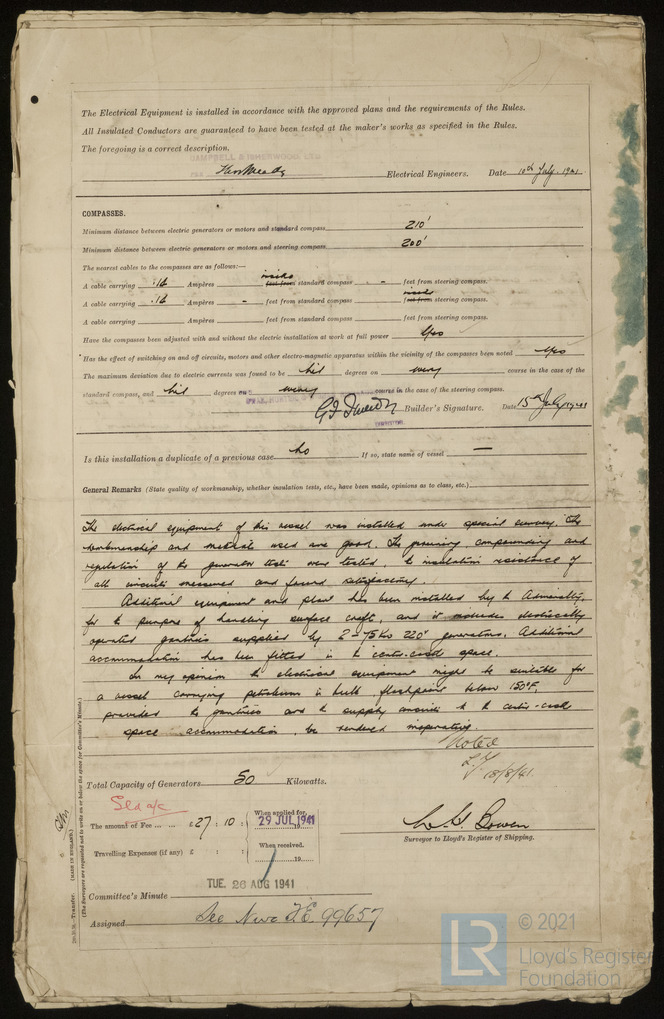 The Electrical Equipment is installed in accordance with the approved plans and the requirements of the Rules.
All Insulated Conductors are guaranteed to have been tested at the maker's works as specified in the Rules.
The foregoing is a correct description.
CAMPBELL & ISHERWOOD LTD
Electrical Engineers. Date 10th July, 1941
COMPASSES.
Minimum distance between electric generators or motors and standard compass 210'
Minimum distance between electric generators or motors and steering compass 200'
The nearest cables to the compasses are as follows:—
A cable carrying .16 Ampères inside feet from standard compass - feet from steering compass.
A cable carrying .16 Ampères - feet from standard compass inside feet from steering compass.
A cable carrying Ampères feet from standard compass feet from steering compass.
Have the compasses been adjusted with and without the electric installation at work at full power Yes
Has the effect of switching on and off circuits, motors and other electro-magnetic apparatus within the vicinity of the compasses been noted Yes
The maximum deviation due to electric currents was found to be Nil degrees on every course in the case of the
standard compass, and Nil degrees on every course in the case of the steering compass.
Builder's Signature. Date 15th July 1941
Is this installation a duplicate of a previous case No If so, state name of vessel —
General Remarks (State quality of workmanship, whether insulation tests, etc., have been made, opinions as to class, etc.)
The electrical equipment of this vessel was installed under special survey. The
workmanship and materials used are good. The governing compounding and
regulation of the generator sets were tested, the insulation resistance of
all circuits measured and found satisfactory.
Additional equipment and plant has been installed by the Admiralty
for the purpose of handling surface craft, and it includes electrically
operated gantries supplied by 2-75 kw 220v generators. Additional
accommodation has been fitted in the centre-castle space.
In my opinion the electrical equipment might be suitable for
a vessel carrying petroleum in bulk, flashpoint below 150°F,
provided the gantries and the supply circuits to the centre-castle
space accommodation, be rendered inoperative.
Noted
18/8/41
Total Capacity of Generators 50 Kilowatts.
The amount of Fee ... ... £27 : 10 : When applied for, 29 JUL 1941 19
Travelling Expenses (if any) £ : : When received, 19
Surveyor to Lloyd's Register of Shipping.
TUE. 26 AUG 1941
Committee's Minute
Assigned See F.E. 99657
(The Surveyors are requested not to write on or below the space for Committee's Minute.)
(MADE IN ENGLAND.)
© 2021
LR
Lloyd's Register
Foundation